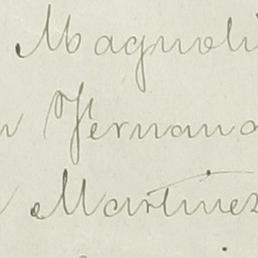 Magnoli
n Fernand
Martinez